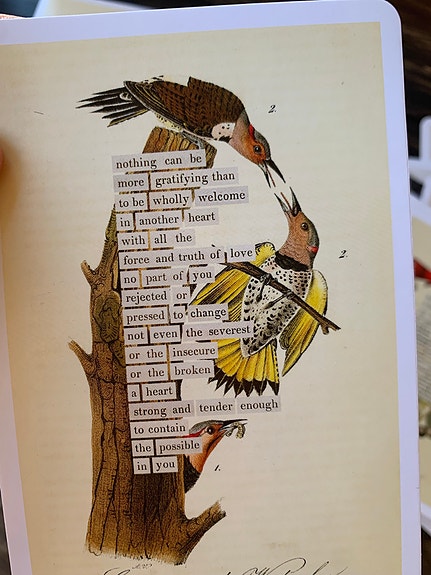 2.
nothing can be
more gratifying than
to be wholly welcome
in another heart
with all the
force and truth of love
no part of you
2.
rejected or
pressed to change
not even the severest
or the insecure
or the broken
a heart
strong and tender enough
to contain
the possible
in you
1.